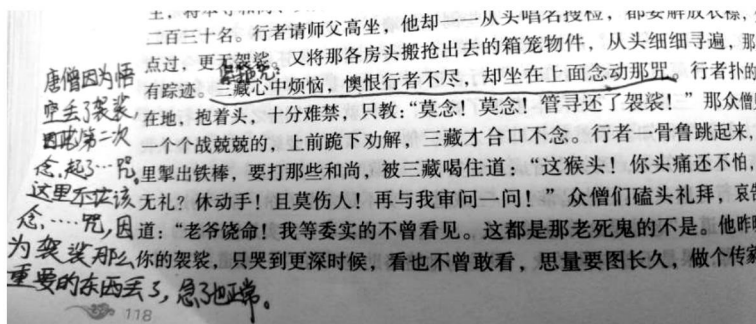 二百三十名。行者请师父高坐，他却一一从头唱名搜检，都要解放衣襟，
点过，更无袈裟。又将那各房头搬抢出去的箱笼物件，从头细细寻遍，那
有踪迹。三藏心中烦恼，懊恨行者不尽，却坐在上面念动那咒。行者扑的
在地，抱着头，十分难禁，只教：“莫念！莫念！管寻还了袈裟！”那众僧
一个个战兢兢的，上前跪下劝解，三藏才合口不念。行者一骨鲁跳起来，
里掣出铁棒，要打那些和尚，被三藏喝住道：“这猴头！你头痛还不怕，
无礼？休动手！且莫伤人！再与我审问一问！”众僧们磕头礼拜，哀告
道：“老爷饶命！我等委实的不曾看见。这都是那老死鬼的不是。他昨
你的袈裟，只哭到更深时候，看也不曾敢看，思量要图长久，做个传
唐僧因为悟
空丢了袈裟，
因此第二次
念起了…咒。
这里不应该
念……咒，因
为袈裟那么
重要的东西丢了，急了也正常。
118